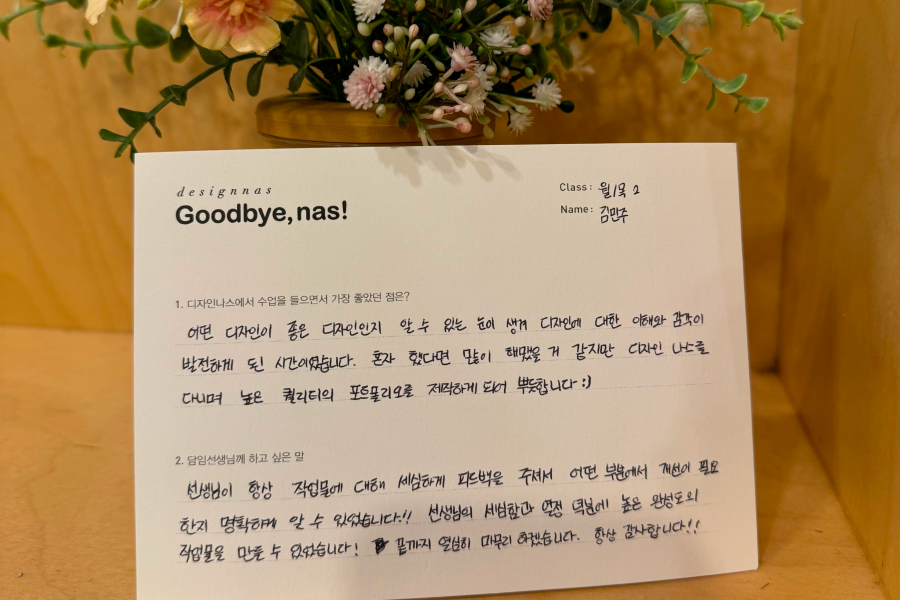 designnas
Goodbye, nas!
Class: 월/목 2
Name: 김민주
1. 디자인나스에서 수업을 들으면서 가장 좋았던 점은?
어떤 디자인이 좋은 디자인인지 알 수 있는 눈이 생겨 디자인에 대한 이해와 감각이
발전하게 된 시간이었습니다. 혼자 했다면 많이 헤맸을 거 같지만 디자인 나스를
다니며 높은 퀄리티의 포트폴리오를 제작하게 되어 뿌듯합니다 :)
2. 담임선생님께 하고 싶은 말
선생님이 항상 작업물에 대해 세심하게 피드백을 주셔서 어떤 부분에서 개선이 필요
한지 명확하게 알 수 있었습니다!! 선생님의 세심함과 열정 덕분에 높은 완성도의
작업물을 만들 수 있었습니다! 끝까지 열심히 마무리 하겠습니다. 항상 감사합니다!!